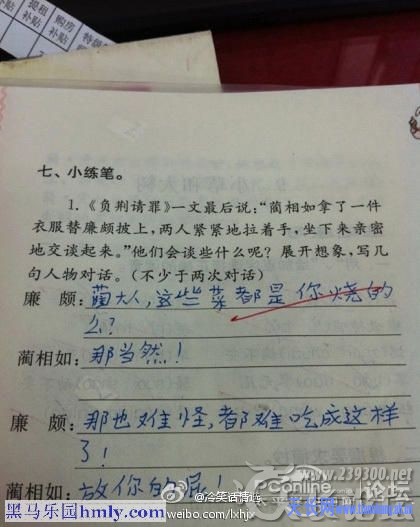 提租
补贴
购房
补贴
特级
七、小练笔。
1.《负荆请罪》一文最后说:“蔺相如拿了一件
衣服替廉颇披上,两人紧紧地拉着手,坐下来亲密
地交谈起来。”他们会谈些什么呢?展开想象,写几
句人物对话。(不少于两次对话)
廉 颇:蔺大人,这些菜都是你烧的
么?
蔺相如:那当然!
廉 颇:那也难怪,都难吃成这样
了!
蔺相如:放你的屁!
www.239300.net
Online
@冷笑话精选
weibo.com/lxhjx
黑马乐园hmly.com